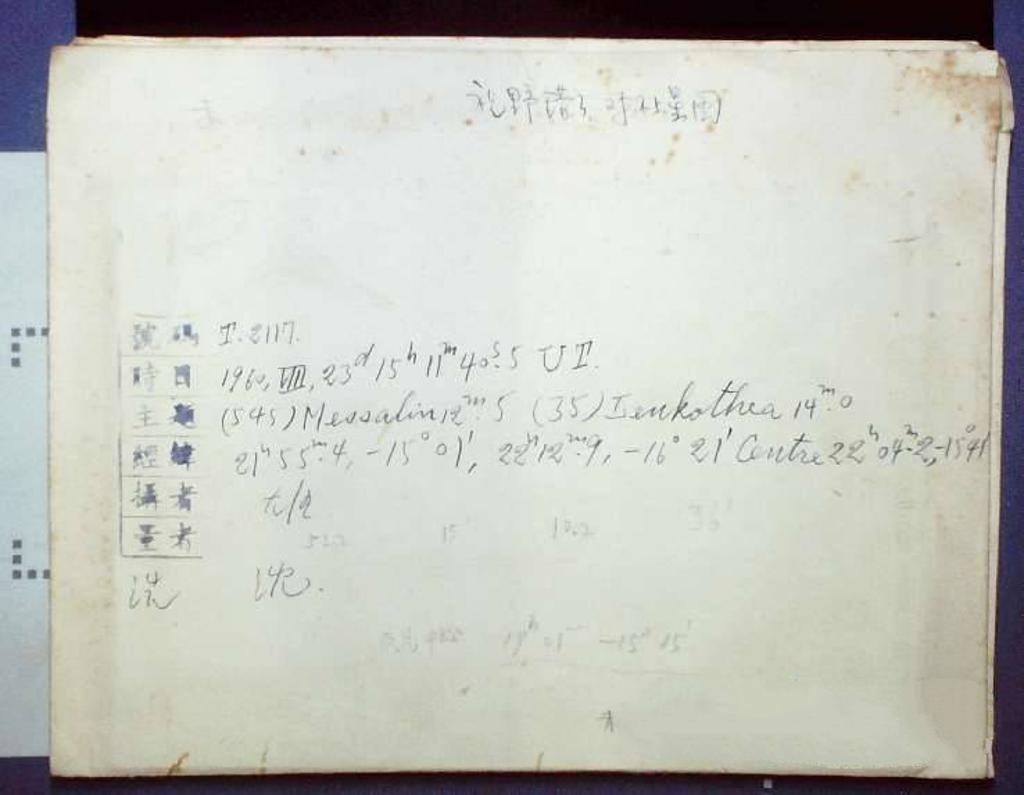 視野錯了,对不上星图
號碼 T. 2117.
時日 1960, VIII, 23ᵈ 15ʰ 11ᵐ 40ˢ.5 U T.
主題 (545) Messalin 12ᵐ.5 (35) Leukothea 14ᵐ.0
經緯 21ʰ 55ᵐ.4, -15° 01', 22ʰ 12ᵐ.9, -16° 21' Centre 22ʰ 04ᵐ.2, -15° 41'
攝者
量者
15 10.2
洗 沈.
01ᵐ -15° 15'